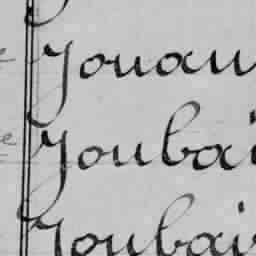 Jouan
Joubai
Joubai